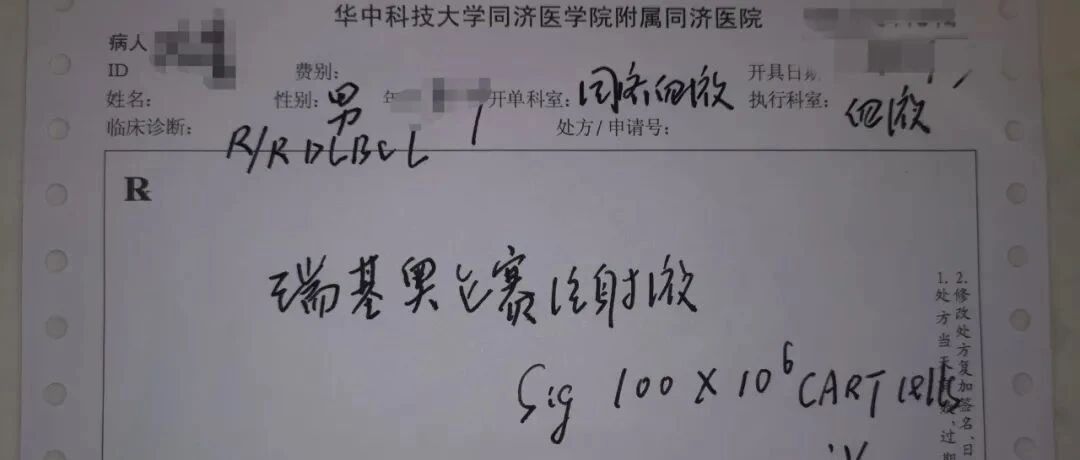 华中科技大学同济医学院附属同济医院
病人
ID
费别:
开具日期
姓名:
性别: 男
开单科室: 同济血液
执行科室: 血液
临床诊断: R/R DLBCL
处方/申请号:
R
瑞基奥仑赛注射液
Sig 100 X 10⁶ CART cells
iv
2.修改处方复加签名、日
1.处方当天有效,过期